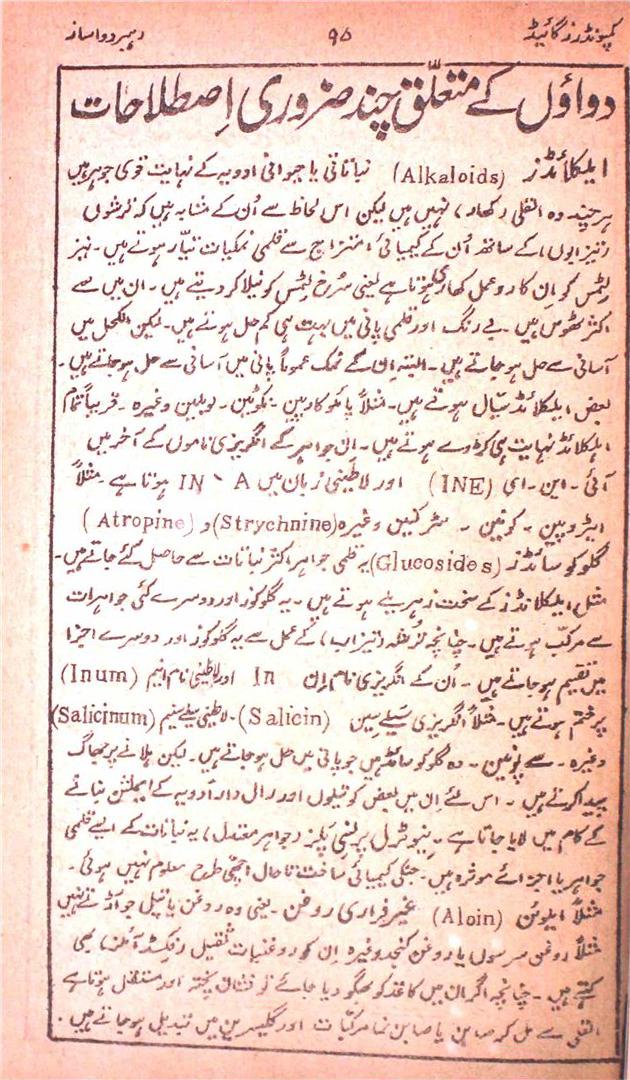 کمپونڈرز گائیڈ ۹۵ رہبر دواساز
دواؤں کے متعلّق چند ضروری اِصطلاحات
ایلکلائڈز (Alkaloids) نباتاتی یا حیوانی ادویہ کے نہایت قوی جوہر ہیں
ہر چند وہ القلی (کھار) نہیں ہیں لیکن اس لحاظ سے اُن کے مشابہ ہیں کہ ترشوں
(تیزابوں) کے ساتھ اُن کے کیمیائی امتزاج سے قلمی نمکیات تیار ہوتے ہیں۔ نیز
لِٹمس کو اِن کا ردعمل کھاری ہوتا ہے یعنی سُرخ لِٹمس کو نیلا کر دیتے ہیں۔ ان میں سے
اکثر ٹھوس ہیں۔ بے رنگ اور قلمی پانی میں بہت ہی کم حل ہوتے ہیں۔ لیکن الکحل میں
آسانی سے حل ہو جاتے ہیں۔ البتہ اِن کے نمک عموماً پانی میں آسانی سے حل ہو جاتے ہیں۔
بعض ایلکلائڈ سیّال ہوتے ہیں۔ مثلاً پائلوکارپین۔ نکوٹین۔ لوبلین وغیرہ۔ قریباً تمام
ایلکلائڈ نہایت ہی کڑوے ہوتے ہیں۔ اِن جواہر کے انگریزی ناموں کے آخر میں
آئی۔ این۔ ای (INE) اور لاطینی زبان میں IN ` A ہوتا ہے۔ مثلاً
ایٹروپین۔ کونین۔ سٹرکنین وغیرہ (Strychnine) و (Atropine)
گلوکوسائڈز (Glucosides) یہ قلمی جواہر اکثر نباتات سے حاصل کئے جاتے ہیں۔
مثل ایلکلائڈز کے سخت زہریلے ہوتے ہیں۔ یہ گلوکوز اور دوسرے کئی جواہرات
سے مرکّب ہوتے ہیں۔ چنانچہ ترشہ (تیزاب) کے عمل سے یہ گلوکوز اور دوسرے اجزا
میں تقسیم ہو جاتے ہیں۔ اُن کے انگریزی نام اِن In اور لاطینی نام انیم (Inum)
پر ختم ہوتے ہیں۔ مثلاً انگریزی سَیلے سین (Salicin)۔ لاطینی سیلے سینم (Salicinum)
وغیرہ۔ سے پونین۔ وہ گلوکوسائڈ ہیں جو پانی میں حل ہو جاتے ہیں۔ لیکن ہلانے پر جھاگ
پیدا کرتے ہیں۔ اس لئے اِن میں بعض کو تیلوں اور رال دار ادویہ کے ایملشن بنانے
کے کام میں لایا جاتا ہے۔ نیوٹرل پرنسی پلز (جواہر معتدل) یہ نباتات کے ایسے قلمی
جواہر یا اجزائے موثرہ ہیں۔ جنکی کیمیائی ساخت تاحال اچھی طرح معلوم نہیں ہوئی۔
مثلاً ایلوئن (Aloin) غیر فراری روغن۔ یعنی وہ روغن یا تیل جو اُڑتے نہیں
مثلاً روغن سرسوں یا روغن کنجد وغیرہ اِن کو روغنیات ثقیل (فکسڈ آئلز) بھی
کہتے ہیں۔ چنانچہ اگر ان میں کاغذ کو بھگو دیا جائے تو نشان پختہ اور مستقل ہوتا ہے
القلی سے مل کر صابن یا صابن نما مرکّبات اور گلیسرین میں تبدیل ہو جاتے ہیں۔